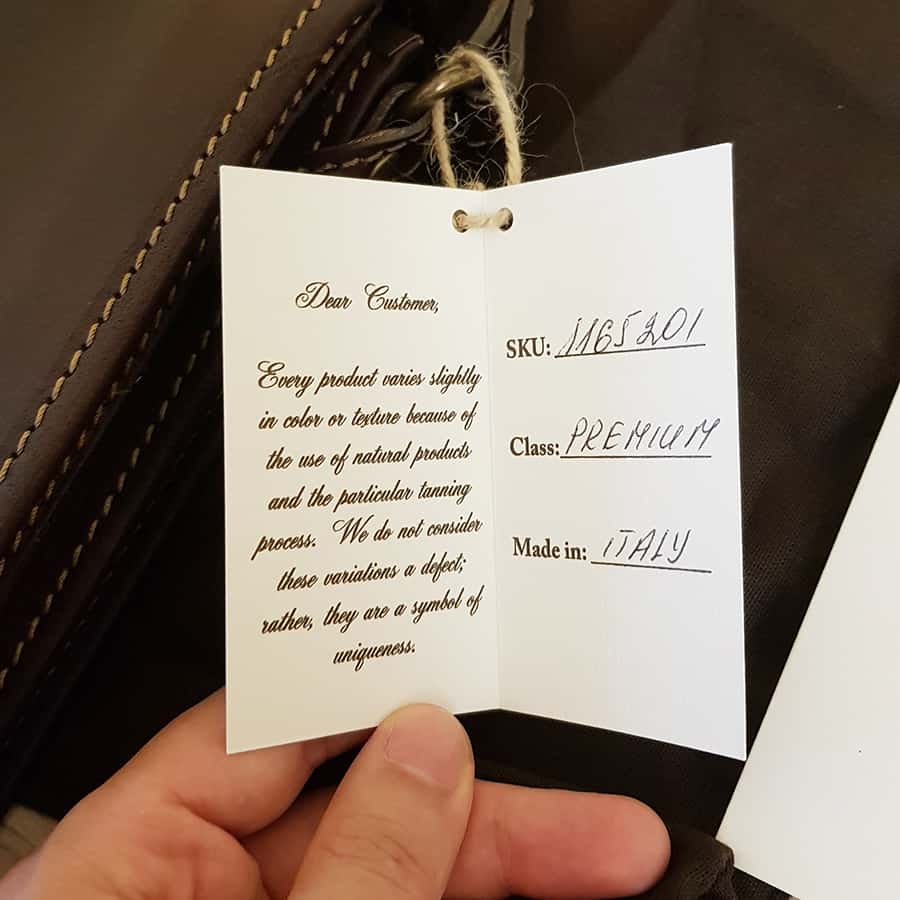 Dear Customer,
Every product varies slightly
in color or texture because of
the use of natural products
and the particular tanning
process. We do not consider
these variations a defect;
rather, they are a symbol of
uniqueness.
SKU: 1165201
Class: PREMIUM
Made in: ITALY